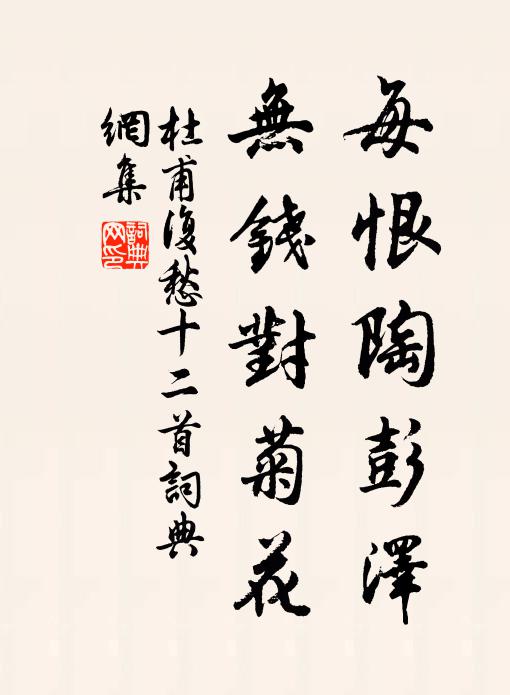 每恨陶彭澤
無錢對菊花
杜甫復愁十二首詞典
網集
詞典
网印